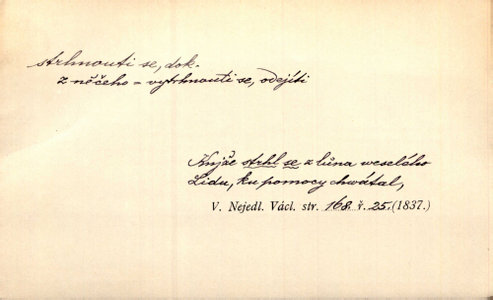 strhnouti se, dok.
z něčeho = vytrhnouti se, odejíti
Kníže strhl se z lůna weselého
Lidu, ku pomocy chwátal,
V. Nejedl. Václ. str. 168. ř. 25. (1837.)